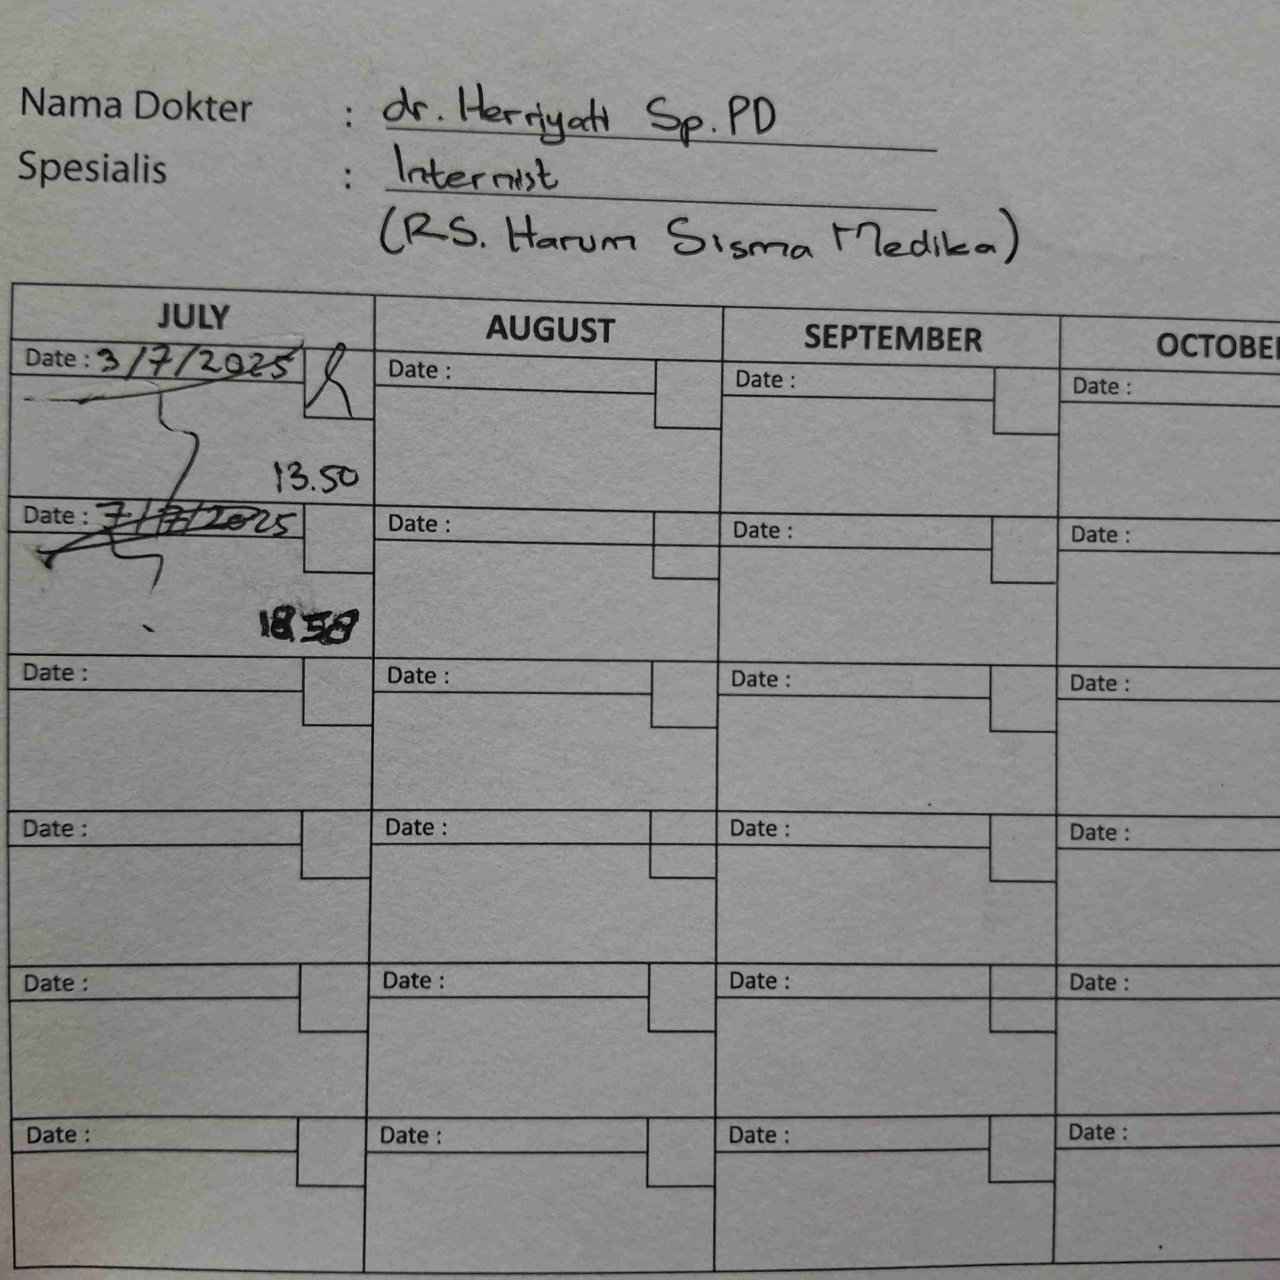 Nama Dokter : dr. Herriyati Sp. PD
Spesialis : Internist
(RS. Harum Sisma Medika)
JULY AUGUST SEPTEMBER OCTOBE
Date : 3/7/2025 Date : Date : Date :
13.50
Date : 7/7/2025 Date : Date : Date :
18.58
Date : Date : Date : Date :
Date : Date : Date : Date :
Date : Date : Date : Date :
Date : Date : Date : Date :